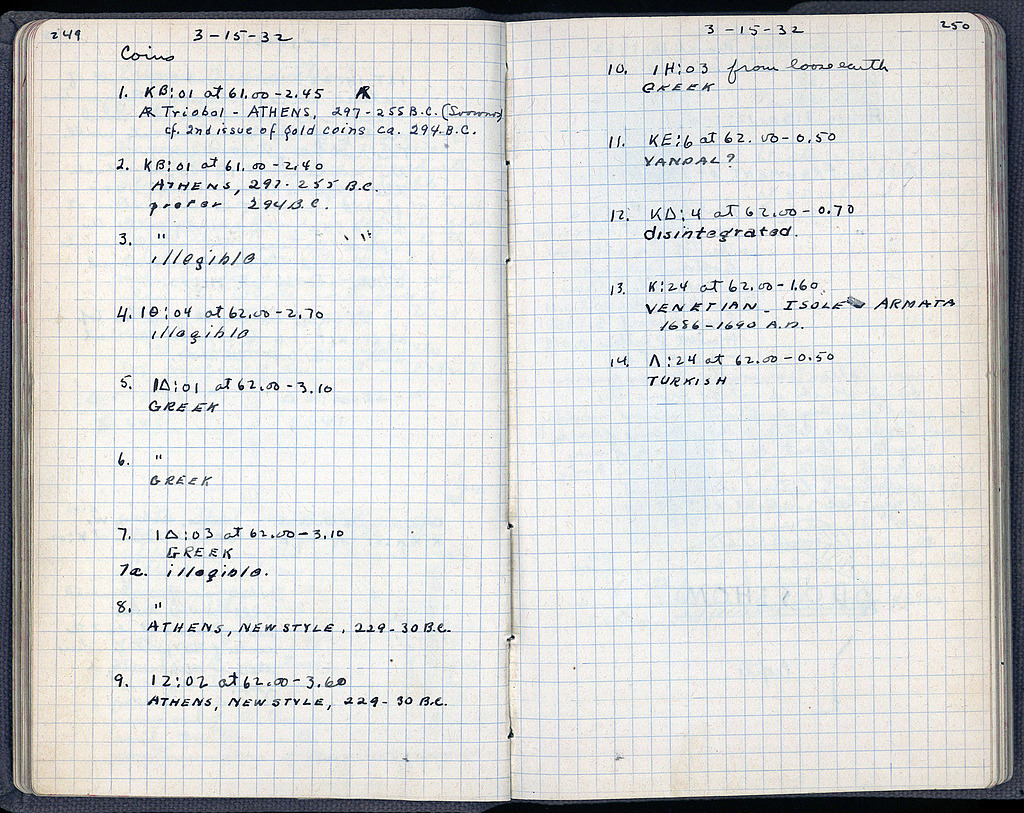 249
3-15-32
Coins
1. KB:01 at 61.00-2.45 AR
AR Triobol - ATHENS, 297-255 B.C. (Svoronos)
cf. 2nd issue of gold coins ca. 294 B.C.
2. KB:01 at 61.00-2.40
ATHENS, 297-255 B.C.
prefer 294 B.C.
3. " "
illegible
4. ΙΘ:04 at 62.00-2.70
illegible
5. ΙΔ:01 at 62.00-3.10
GREEK
6. "
GREEK
7. ΙΔ:03 at 62.00-3.10
GREEK
7a. illegible.
8. "
ATHENS, NEW STYLE, 229-30 B.C.
9. ΙΖ:02 at 62.00-3.60
ATHENS, NEW STYLE, 229-30 B.C.
250
3-15-32
10. ΙΗ:03 from loose earth
GREEK
11. KE:6 at 62.00-0.50
VANDAL?
12. ΚΔ:4 at 62.00-0.70
disintegrated.
13. K:24 at 62.00-1.60
VENETIAN - ISOLE ARMATA
1686-1690 A.D.
14. Λ:24 at 62.00-0.50
TURKISH